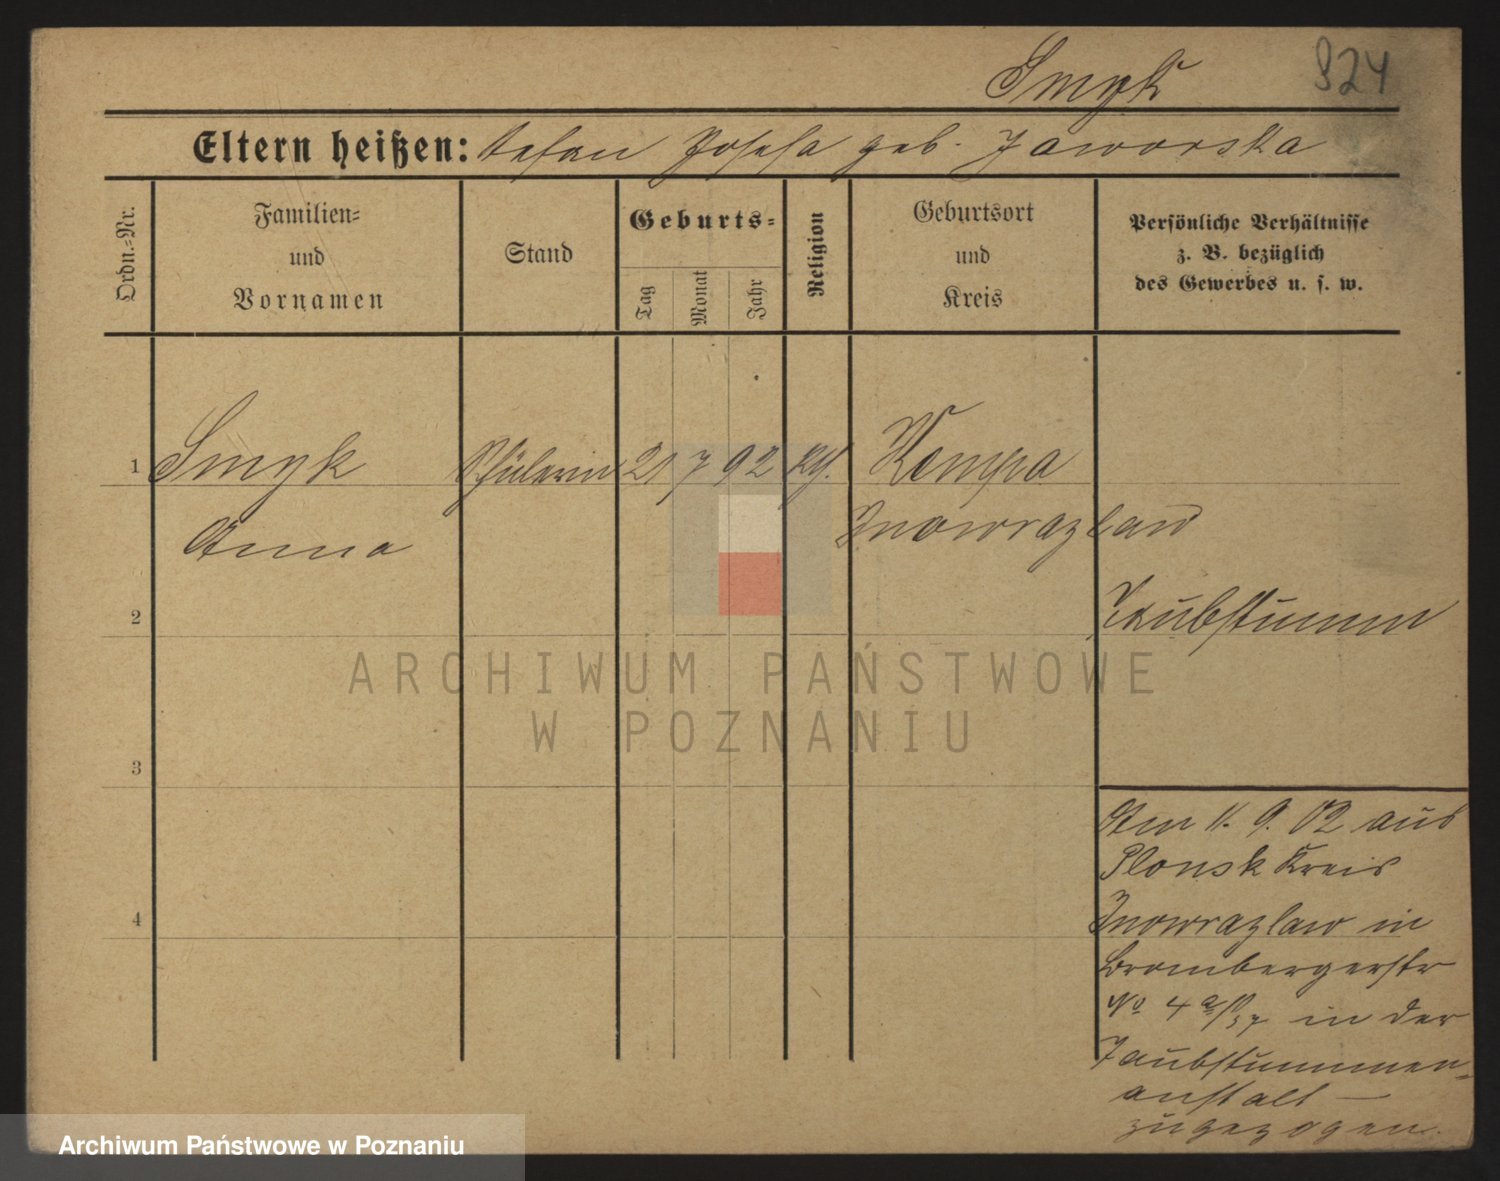 Smyk
924
Eltern heißen: Stefan Josefa geb. Jaworska
Ordn.-Nr.
Familien-
und
Vornamen
Stand
Geburts-
Tag
Monat
Jahr
Religion
Geburtsort
und
Kreis
Persönliche Verhältnisse
z. B. bezüglich
des Gewerbes u. s. w.
1 Smyk Schülerin 21 7 92 kth. Kempa
Anna Inowrazlaw
2 Taubstumm
3
4
Am 11. 9. 02 aus
Plonsk Kreis
Inowrazlaw in
Brombergerstr
No 4 a/37 in der
Taubstummen-
anstalt —
zugezogen.
ARCHIWUM PAŃSTWOWE
W POZNANIU
Archiwum Państwowe w Poznaniu